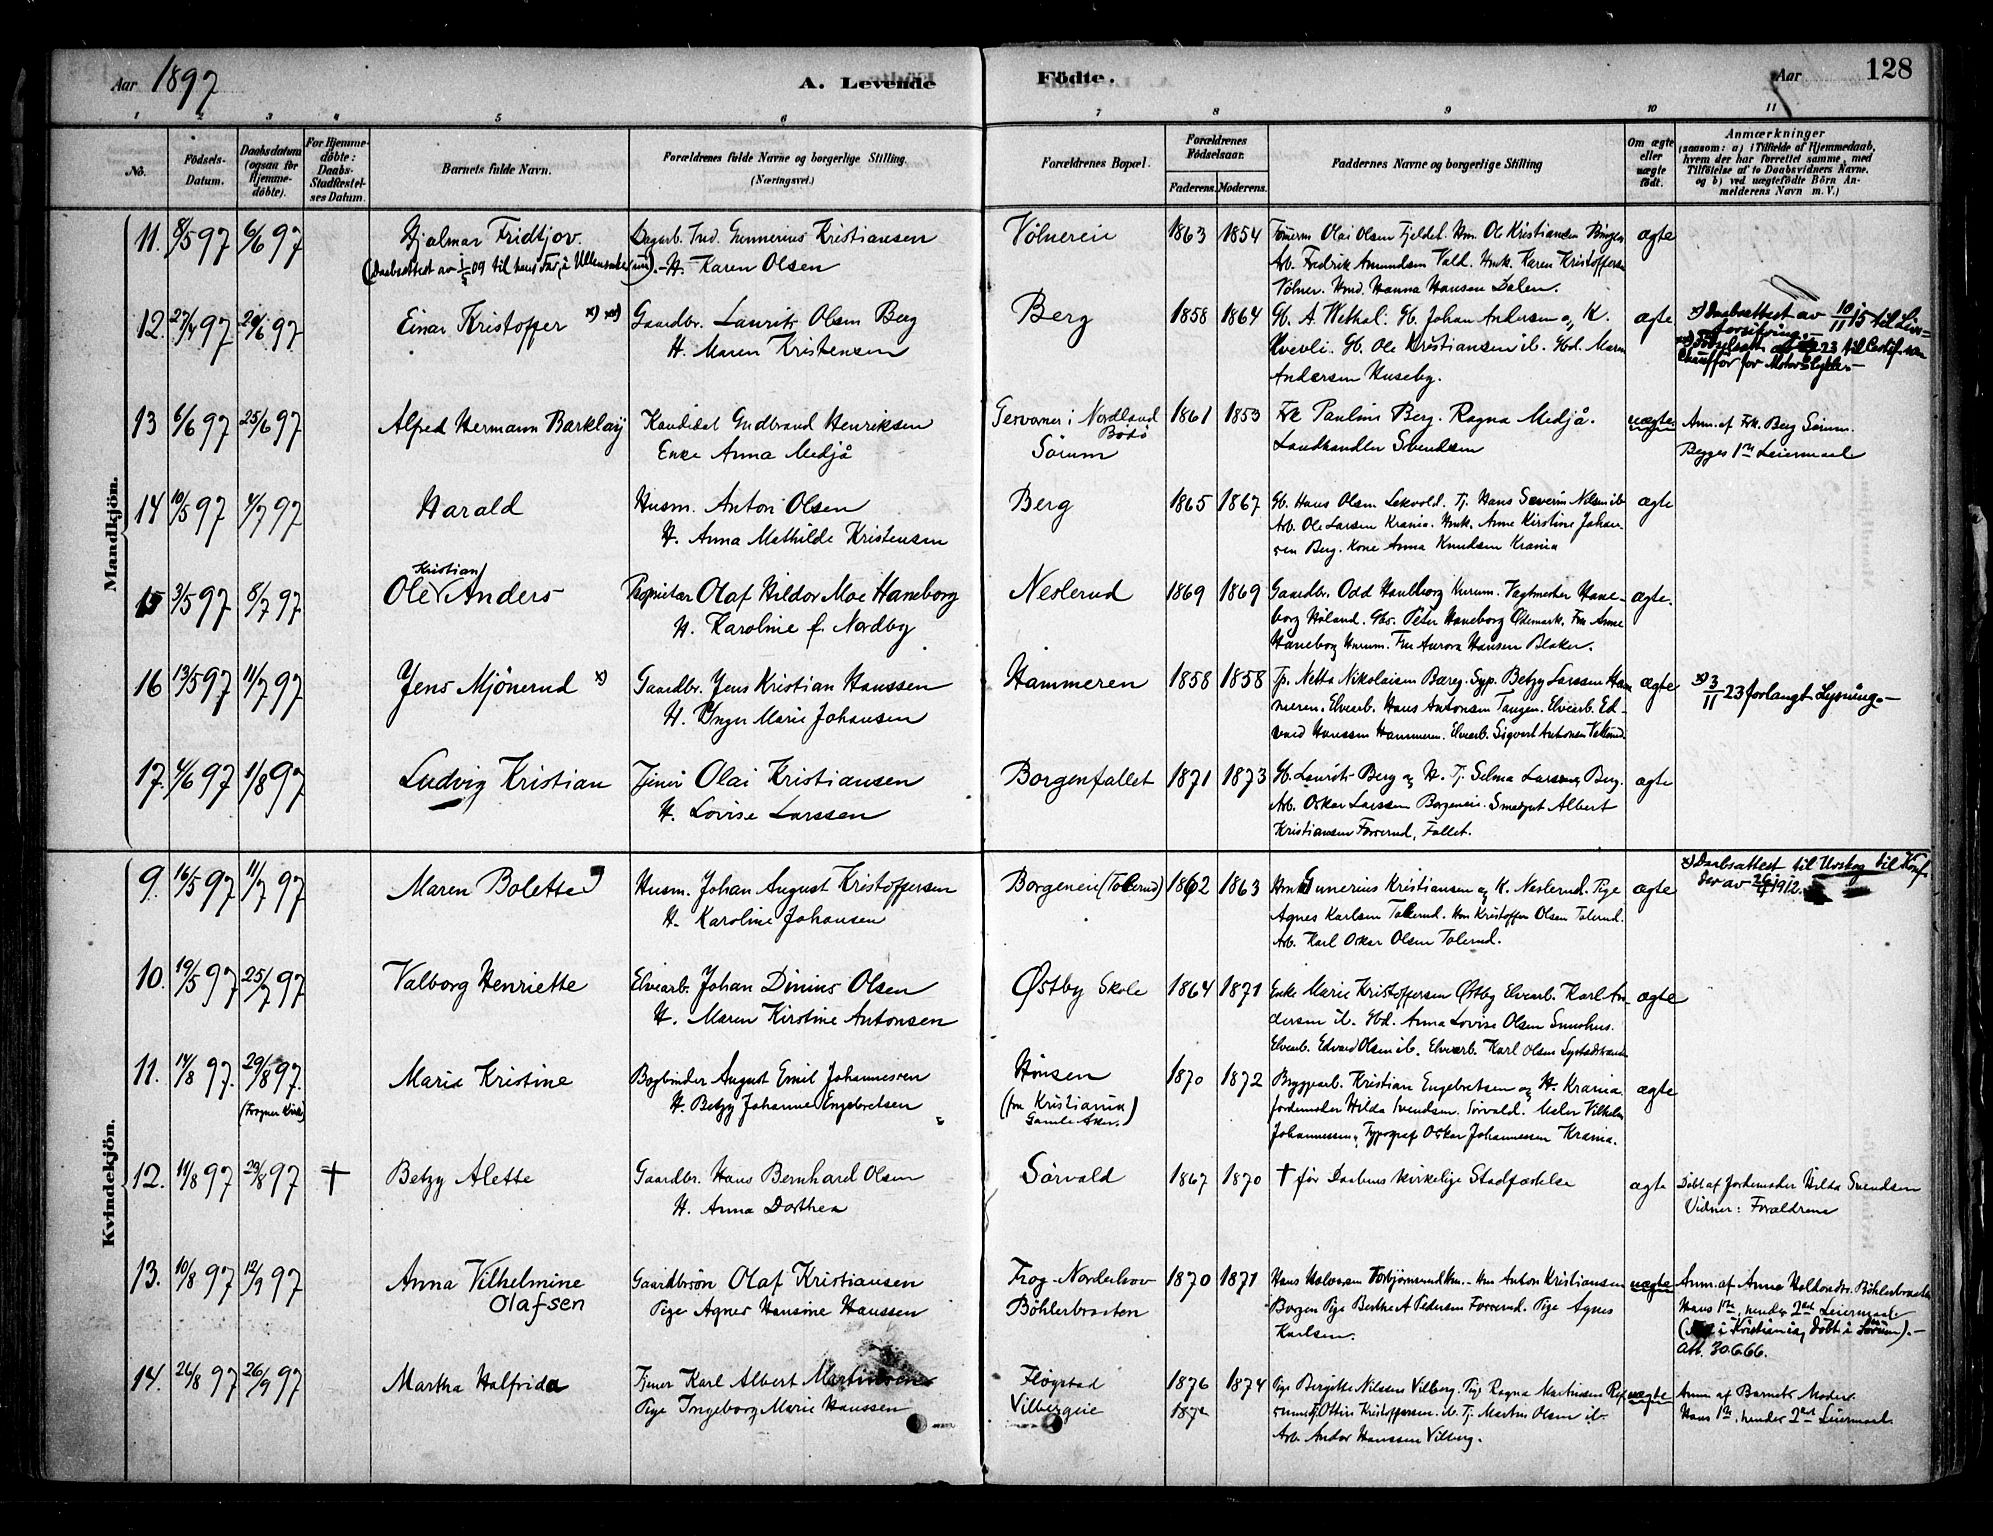 Aar 1897
A. Levende
Födte.
Aar
128
1 2 3 4 5 6 7 8 9 10 11
No.
Födsels-Datum.
Daabsdatum (ogsaa for Hjemme-döbte).
For Hjemme-döbte: Daabs-Stadfæstel-ses Datum.
Barnets fulde Navn.
Forældrenes fulde Navne og borgerlige Stilling. (Næringsvei.)
Forældrenes Bopæl.
Forældrenes Födselsaar.
Faderens. Moderens.
Faddernes Navne og borgerlige Stilling
Om ægte eller uægte født.
Anmærkninger (saasom: a) i Tilfælde af Hjemmedaab, hvem der har forrettet samme, med Tilföielse af to Daabsvidners Navne, og b) ved uægtefödte Börn An-melderens Navn m. V.)
Mandkjön.
11. 8/5 97 6/6 97 Hjalmar Fridtjov. Dagarb. Ind. Gunnerius Kristiansen Völnereie 1863 1854 Tömerm. Olai Olsen Fjeldet. Hm. Ole Kristiansen Bingen ægte
H. Karen Olsen Arb. Fredrik Amundsen Vald. Hmk. Karen Kristoffersen
Völner. Hmd. Hanna Hansen Dalen.
12. 27/4 97 20/6 97 Einar Kristoffer x) xx) Gaardbr. Laurits Olsen Berg Berg 1858 1864 Gb. A. Wethal. Gb. Johan Andersen og K. ægte x) Daabsattest av 10/11 15 til Livs=
H. Maren Kristensen Kvevli. Gb. Ole Kristiansen ib. Gbd. Maren forsikring.
Andersen Huseby. chauffør for Motorcykler.
13 6/6 97 25/6 97 Alfred Hermann Barklay Kandidat Gudbrand Henriksen i Nordland Bodö 1861 1853 Frk Pauline Berg. Ragna Medjå. uægte Anm. af Frk. Berg Sörum.
Enke Anna Medjå Sörum Landhandler Svendsen Begges 1ste Leiermaal
14 10/5 97 4/7 97 Harald Husm. Anton Olsen Berg 1865 1867 Gb. Hans Olsen Lekvold. Tj. Hans Severin Nilsen ib. ægte
H. Anna Mathilde Kristensen Arb. Ole Larsen Krania. Hmk. Anne Kirstine Johan-
sen Berg. Kone Anna Knudsen Krania
15 3/5 97 8/7 97 Ole Kristian Anders Proprietær Olaf Hildor Moe Haneborg Neslerud 1869 1869 Gaardbr. Odd Haneborg Hurum. Vagtmester Hane- ægte.
H. Karoline f. Nordby borg Höland. Gbs. Peter Haneborg Ödemark. Fru Anne
Haneborg Hurum. Fru Aurora Hansen Blaker.
16 13/5 97 11/7 97 Jens Mjönerud x) Gaardbr. Jens Kristian Hanssen Hammeren 1858 1858 Tp. Netta Nikolaisen Berg. Syp. Betzy Larssen Ham- ægte x) 3/11 23 forlangt Lysning.
H. Inger Marie Johansen meren. Elvearb. Hans Antonsen Tangen. Elvearb. Ed-
vard Hanssen Hammeren. Elvearb. Sigvart Antonsen
17. 4/6 97 1/8 97 Ludvig Kristian Tjener Olai Kristiansen Borgenfallet 1871 1873 Gb. Laurits Berg og H. Tj. Selma Larssen Berg. ægte
H. Lovise Larssen Arb. Oskar Larssen Borgeneie. Smedgut Albert
Kristiansen Forrerud, Fallet.
Kvindekjön.
9. 16/5 97 11/7 97 Maren Bolette Husm. Johan August Kristoffersen Borgeneie (Tolerud) 1862 1863 Gunnerius Kristiansen og K. Neslerud. Pige ægte x) Daabsattest til Urskog til Konf.
H. Karoline Johansen Agnes Karlsen Tolerud. Hm Kristoffer Olsen Tolerud. 1912.
Arb. Karl Oskar Olsen Tolerud.
10. 19/5 97 25/7 97 Valborg Henriette Elvearb. Johan Dinius Olsen Østby Skole 1864 1871 Enke Marie Kristoffersen Østby Elvearb. Karl An- ægte
H. Maren Kirstine Antonsen dersen ib. Gbd. Anna Lovise Olsen
Elvearb. Edvard Olsen ib. Elvearb. Karl Olsen
11. 14/8 97. 29/8 97. (Frogner Kirke) Maria Kristine Bogbinder August Emil Johannessen Hönsen 1870 1872 Bryggearb. Kristian Engebretsen og H. Krania. ægte
H. Betzy Johanne Engebretsen (fra Kristiania Gamle Aker.) Jordemoder Hilda Svendsen. Sörvald. Maler Vilhelm
Johannessen, Typograf Oskar Johannessen Krania.
12. 11/8 97 23/8 97 † Betzy Alette Gaardbr. Hans Bernhard Olsen Sörvald 1867 1870 † för Daabens kirkelige Stadfæstelse ægte Döbt af Jordemoder Hilda Svendsen
H. Anna Dorthea Vidner: Forældrene
13. 10/8 97 12/9 97 Anna Vilhelmine Gaardbrsön Olaf Kristiansen Frog-Norderhov 1870 1871 Hm. Anton Kristiansen uægte Anm. af
Olafsen Pige Agnes Hansine Hanssen Böhlerbraaten Borgen Pige Berthe A Pedersen Forrerud. Pige Agnes Hans 1ste, hendes 2det Leiermaal
Karlsen. i Kristiania, Döbt i Sörum).
Att. 30.6.66.
14. 26/8 97 26/9 97 Martha Halfrida Tjener Karl Albert Martinsen Fløgstad 1876 1874 Pige Birgitte Nilssen Vilberg. Pige Ragna Martinsen uægte Anm. af Barnets Moder.
Pige Ingeborg Marie Hanssen Vilbergeie 1872 Kristoffersen. ib. Tj. Martin Olsen ib. Hans 1ste, hendes 2det Leiermaal.
Arb. Andor Hanssen Vilberg.